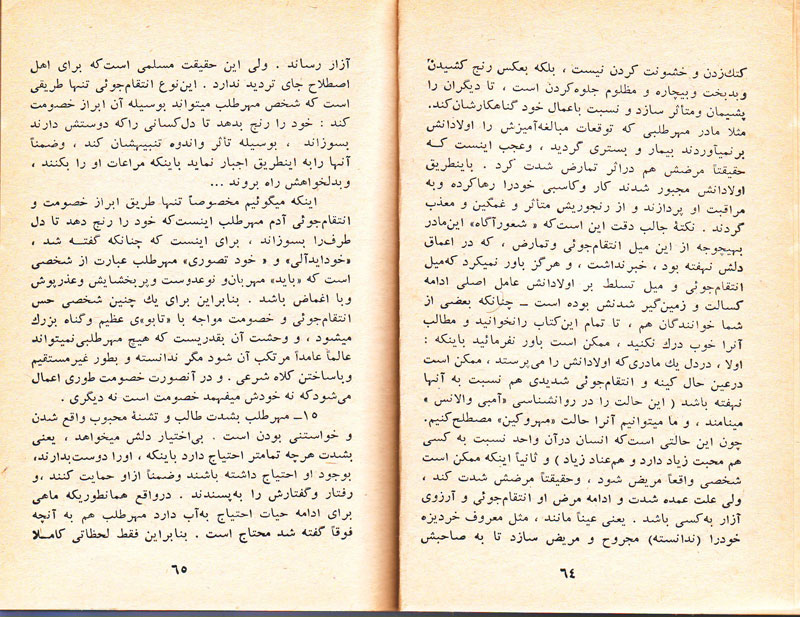 کتک‌زدن و خشونت کردن نیست ، بلکه بعکس رنج کشیدن
وبدبخت وبیچاره و مظلوم جلوه‌کردن است ، تا دیگران را
پشیمان ومتأثر سازد و نسبت باعمال خود گناهکارشان‌کند.
مثلا مادر مهرطلبی که توقعات مبالغه‌آمیزش را اولادانش
برنمیآوردند بیمار و بستری گردید ، وعجب اینست کــه
حقیقتاً مرضش هم دراثر تمارض شدت کرد . باینطریق
اولادانش مجبور شدند کار وکاسبی خودرا رهاکرده وبه
مراقبت او پردازند و از رنجوریش متأثر و غمگین و معذب
گردند . نکتهٔ جالب دقت این است‌که « شعورآگاه» این‌مادر
بهیچوجه از این میل انتقام‌جوئی وتمارض ، که در اعماق
دلش نهفته بود ، خبرنداشت ، و هرگز باور نمیکرد که‌میل
انتقام‌جوئی و میل تسلط بر اولادانش عامل اصلی ادامه
کسالت و زمین‌گیر شدنش بوده است ــ چنانکه بعضی از
شما خوانندگان هم ، تا تمام این‌کتاب رانخوانید و مطالب
آنرا خوب درك نکنید ، ممکن است باور نفرمائید باینکه :
اولا ، دردل یك مادری‌که اولادانش را می‌پرستد ، ممکن است
درعین حال کینه و انتقام‌جوئی شدیدی هم نسبت به آنها
نهفته باشد ( این حالت را در روانشناسی «آمبی والانس »
مینامند ، و ما میتوانیم آنرا حالت «مهروکین» مصطلح‌کنیم.
چون این حالتی است‌که انسان درآن واحد نسبت به کسی
هم محبت زیاد دارد و هم‌عناد زیاد ) و ثانیاً اینکه ممکن است
شخصی واقعاً مریض شود ، وحقیقتاً مرضش شدت کند ،
ولی علت عمده شدت و ادامه مرض او انتقام‌جوئی و آرزوی
آزار به‌کسی باشد . یعنی عیناً مانند ، مثل معروف خردیزه
خودرا (ندانسته) مجروح و مریض سازد تا به صاحبش
٦٤
آزار رساند . ولی این حقیقت مسلمی است‌که برای اهل
اصطلاح جای تردید ندارد . این‌نوع انتقام‌جوئی تنها طریقی
است که شخص مهرطلب میتواند بوسیله آن ابراز خصومت
کند : خود را رنج بدهد تا دل‌کسانی راکه دوستش دارند
بسوزاند ، بوسیله تأثر واندوه تنبیهشان کند ، وضمناً
آنها رابه اینطریق اجبار نماید باینکه مراعات او را بکنند ،
وبدلخواهش راه بروند ...
اینکه میگوئیم مخصوصاً تنها طریق ابراز خصومت و
انتقام‌جوئی آدم مهرطلب اینست‌که خود را رنج دهد تا دل
طرف‌را بسوزاند ، برای اینست که چنانکه گفتــه شد ،
«خودایدآلی» و « خود تصوری» مهرطلب عبارت از شخصی
است که «باید» مهربان‌و نوعدوست وپربخشایش وعذرپوش
وبا اغماض باشد . بنابراین برای یك چنین شخصی حس
انتقام‌جوئی و خصومت مواجه با «تابو»ی عظیم وگناه بزرك
میشود ، و وحشت آن بقدریست که هیچ مهرطلبی‌نمیتواند
عالماً عامداً مرتکب آن شود مگر ندانسته و بطور غیرمستقیم
وباساختن کلاه شرعی . و در آنصورت خصومت طوری اعمال
می‌شودکه نه خودش میفهمد خصومت است نه دیگری .
۱٥ــ مهرطلب بشدت طالب و تشنهٔ محبوب واقع شدن
و خواستنی بودن است . بی‌اختیار دلش میخواهد ، یعنی
بشدت هرچه تمامتر احتیاج دارد باینکه ، اورا دوست‌بدارند،
بوجود او احتیاج داشته باشند وضمناً ازاو حمایت کنند ،و
رفتار وگفتارش را به‌پسندند . درواقع همانطوریکه ماهی
برای ادامه حیات احتیاج به‌آب دارد مهرطلب هم به آنچه
فوقاً گفته شد محتاج است . بنابراین فقط لحظاتی کامــلا
٦٥